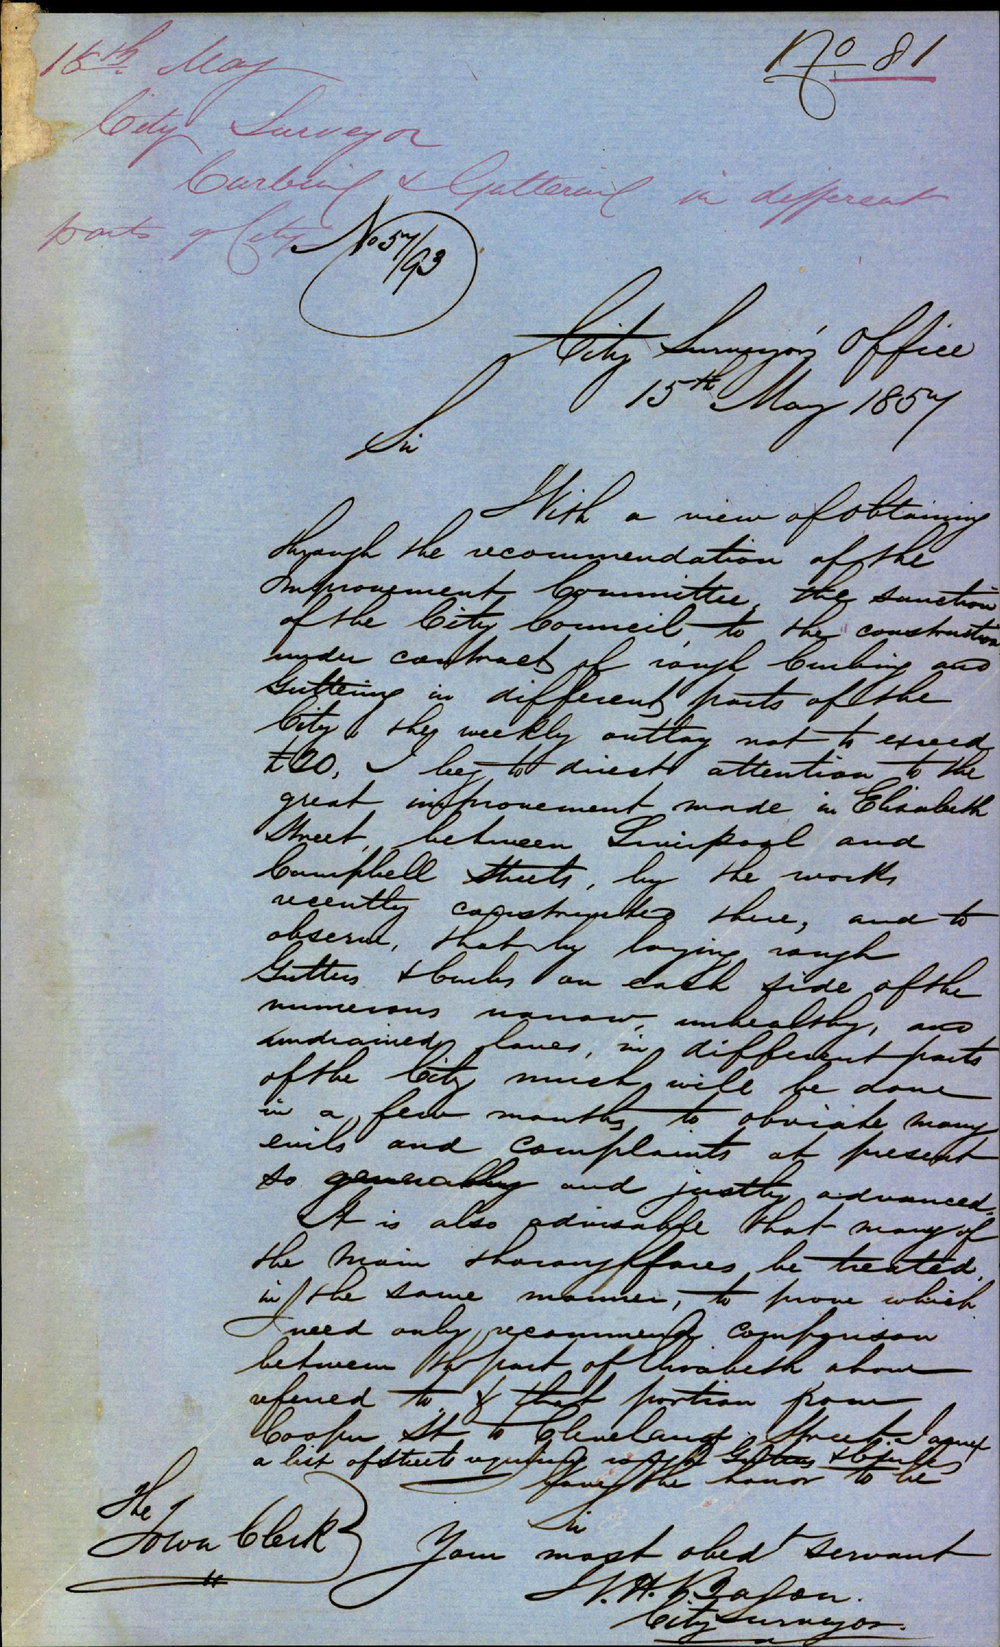 15th May
No 81
City Surveyor
Curbing & Guttering in different
parts of City
No 57/93
City Surveyor's Office
15th May 1857
Sir
With a view of obtaining
through the recommendation of the
Improvement Committee, the sanction
of the City Council, to the construction
under contract of rough Curbing and
Guttering in different parts of the
City, the weekly outlay not to exceed
£20, I beg to direct attention to the
great improvement made in Elizabeth
Street, between Liverpool and
Campbell Streets, by the works
recently constructed there, and to
observe, that by laying rough
Gutters & Curbs on each side of the
numerous narrow, unhealthy, and
undrained lanes, in different parts
of the City much will be done
in a few months to obviate many
evils and complaints at present
so generally and justly advanced.
It is also advisable that many of
the main thoroughfares be treated
in the same manner, to prove which
I need only recommend comparison
between the part of Elizabeth above
referred to & that portion from
Cooper St to Cleveland Street. I annex
a list of Streets requiring rough Gutters & Curbs
have the honor to be
Sir
The
Town Clerk
Your most obedt servant
City Surveyor.